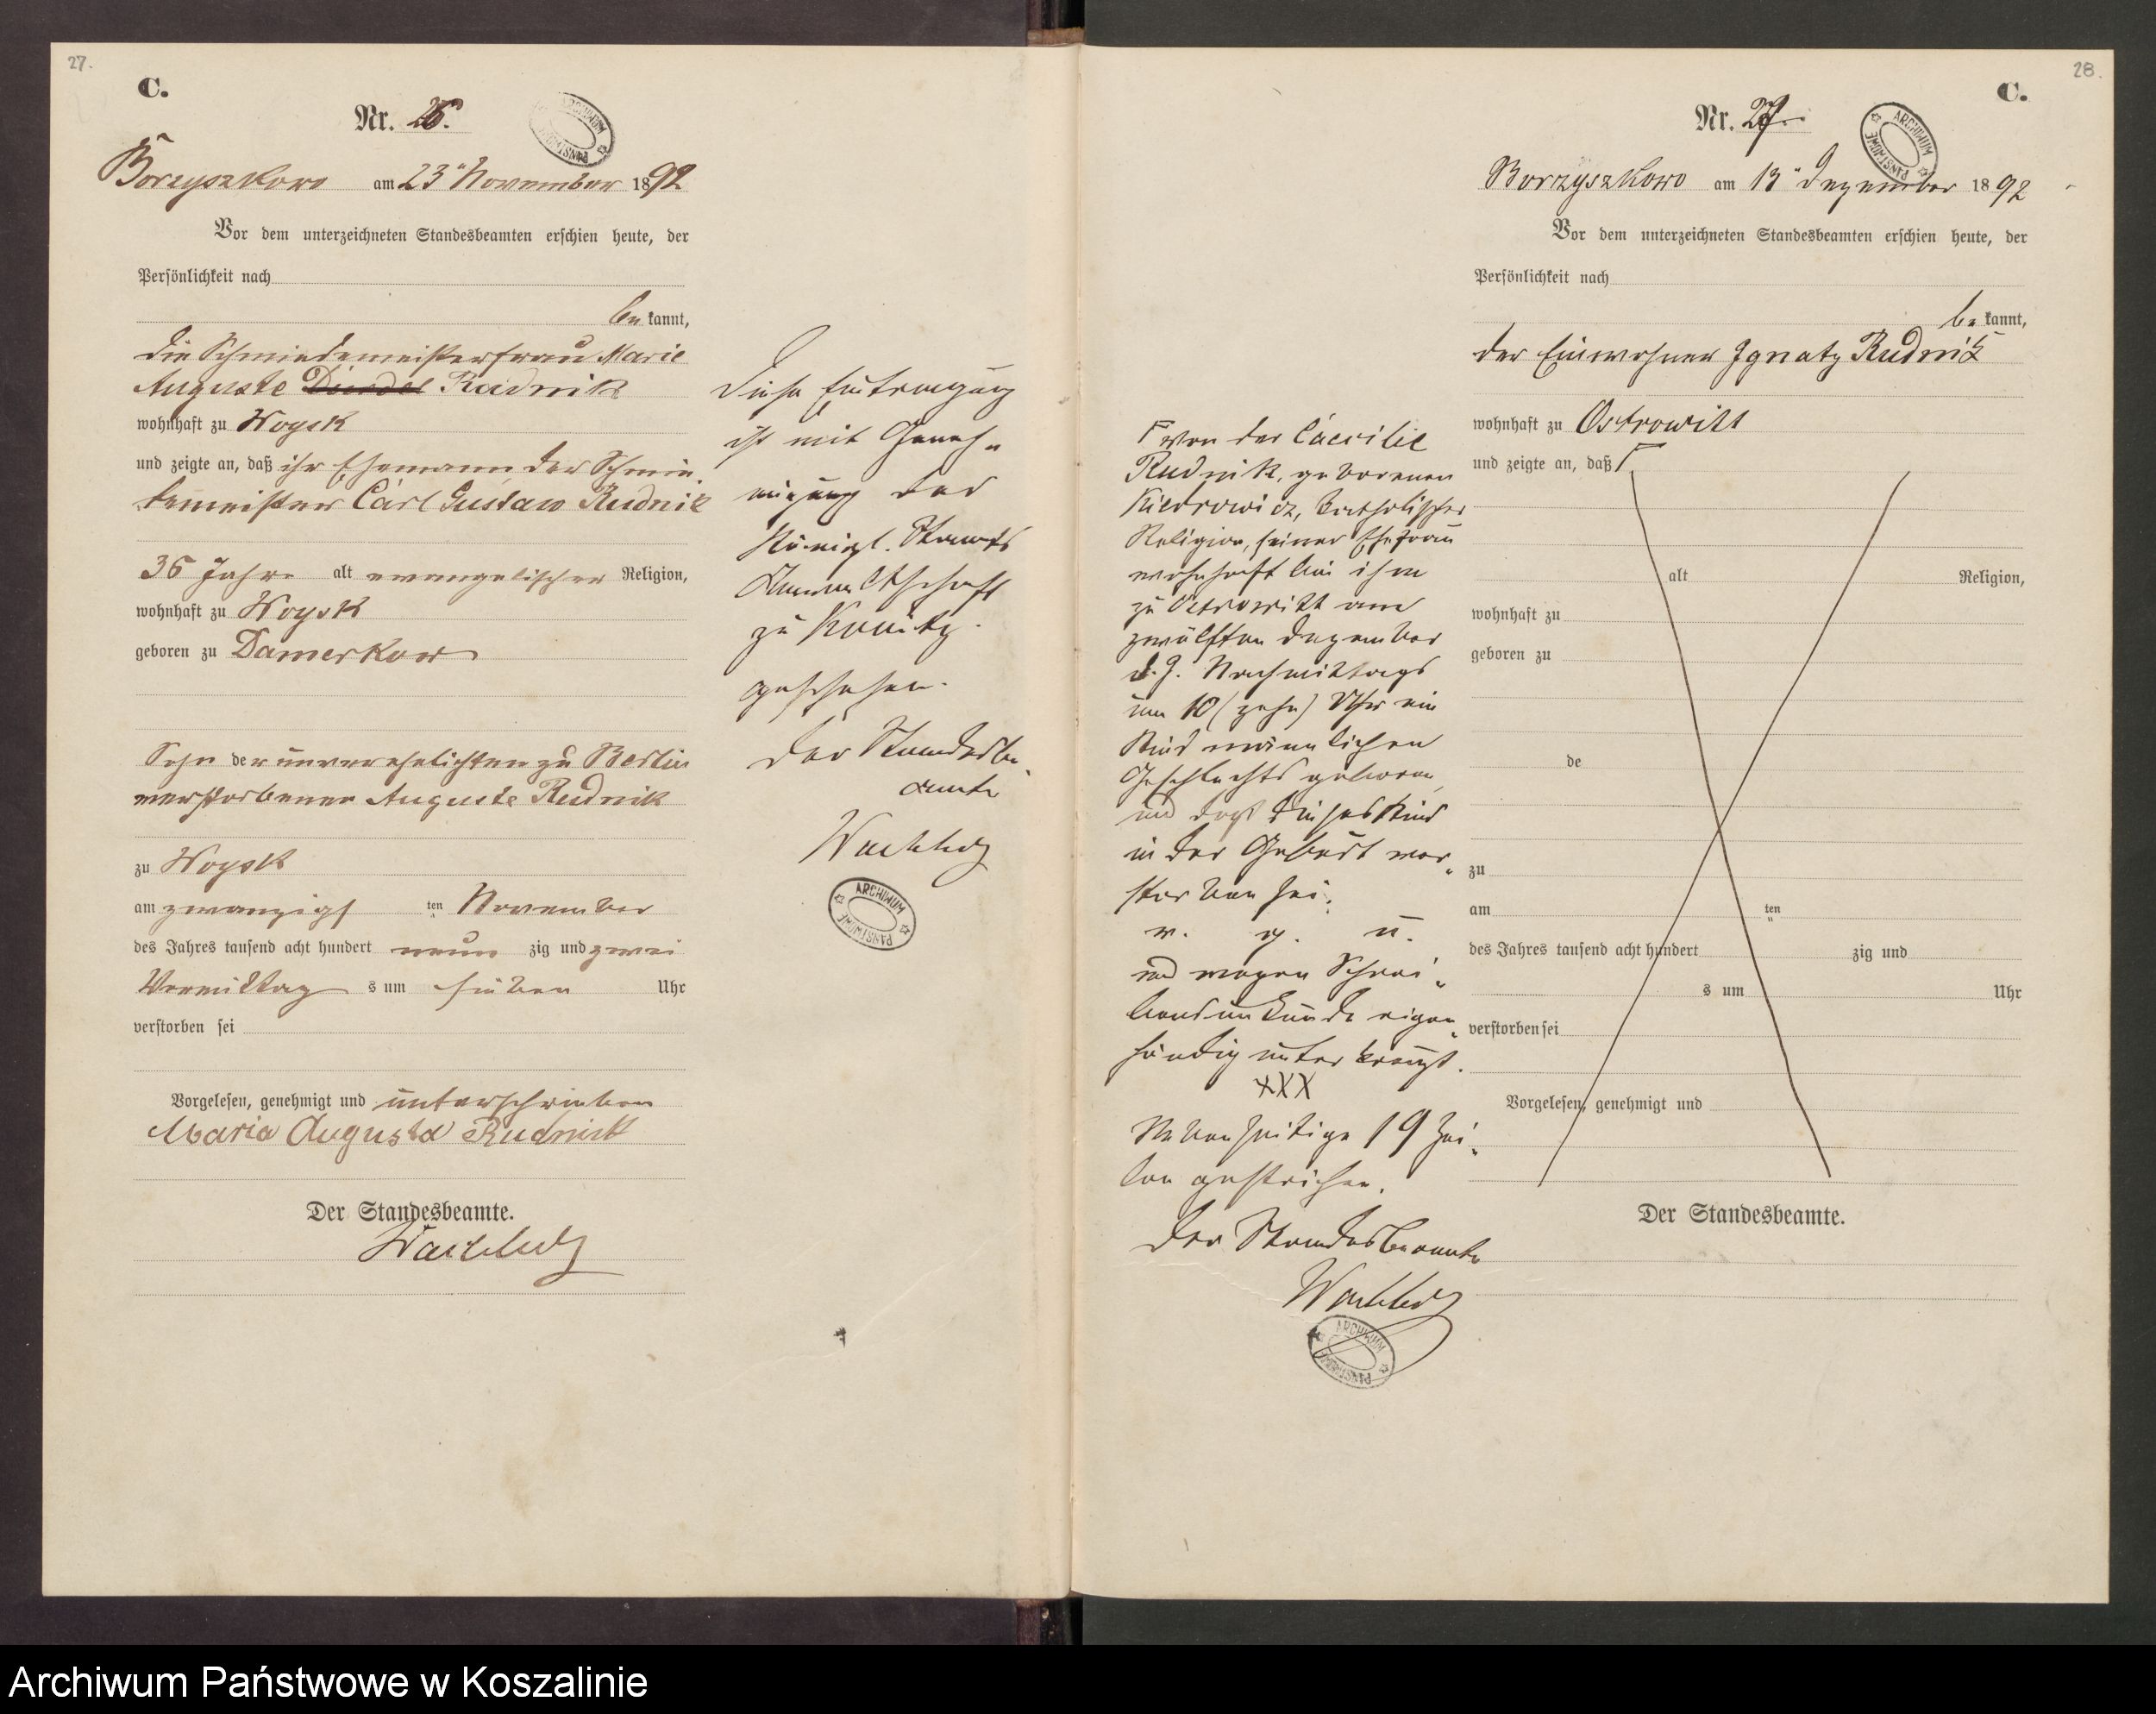 27.
C.
Nr. 26.
Borzyszkowo am 23ⁿ November 1892
Vor dem unterzeichneten Standesbeamten erschien heute, der
Persönlichkeit nach
be kannt,
die Schmiedemeisterfrau Marie
Auguste Rudnik
wohnhaft zu Woysk
und zeigte an, daß ihr Ehemann, der Schmie-
demeister Carl Gustaw Rudnik
36 Jahre alt evangelischer Religion,
wohnhaft zu Woysk
geboren zu Damerkow
Sohn der unverehelichten zu Berlin
verstorbenen Auguste Rudnik
zu Woysk
am zwanzigs ten November
des Jahres tausend acht hundert neun zig und zwei
Vormittag s um sieben Uhr
verstorben sei
Vorgelesen, genehmigt und unterschrieben
Maria Augusta Rudnick
Der Standesbeamte.
Wachholz
Diese Eintragung
ist mit Geneh-
migung der
Königl. Staats
Anwaltschaft
zu Konitz
geschehen.
Der Standesbe-
amte
Wachholz
ARCHIWUM PAŃSTWOWE
28.
C.
Nr. 27.
ARCHIWUM PAŃSTWOWE
Borzyszkowo am 13ⁿ Dezember 1892
Vor dem unterzeichneten Standesbeamten erschien heute, der
Persönlichkeit nach
be kannt,
der Einwohner Ignatz Rudnik
wohnhaft zu Ostrowitt
und zeigte an, daß Γ
alt Religion,
wohnhaft zu
geboren zu
de
zu
am ten
des Jahres tausend acht hundert zig und
s um Uhr
verstorben sei
Vorgelesen, genehmigt und
Der Standesbeamte.
Γ von der Caecilie
Rudnik, geborenen
Kiedrowicz, katholischer
Religion, seiner Ehefrau
wohnhaft bei ihm
zu Ostrowitt am
zwölften Dezember
d. J. Nachmittags
um 10 (zehn) Uhr ein
Kind männlichen
Geschlechts geboren,
und daß dieses Kind
in der Geburt ver-
storben sei.
v. g. u.
und wegen Schrei-
bensunkunde eigen-
händig unterkreuzt.
XXX
Nebenseitige 19 Zei-
len gestrichen.
Der Standesbeamte
Wachholz
ARCHIWUM PAŃSTWOWE
Archiwum Państwowe w Koszalinie